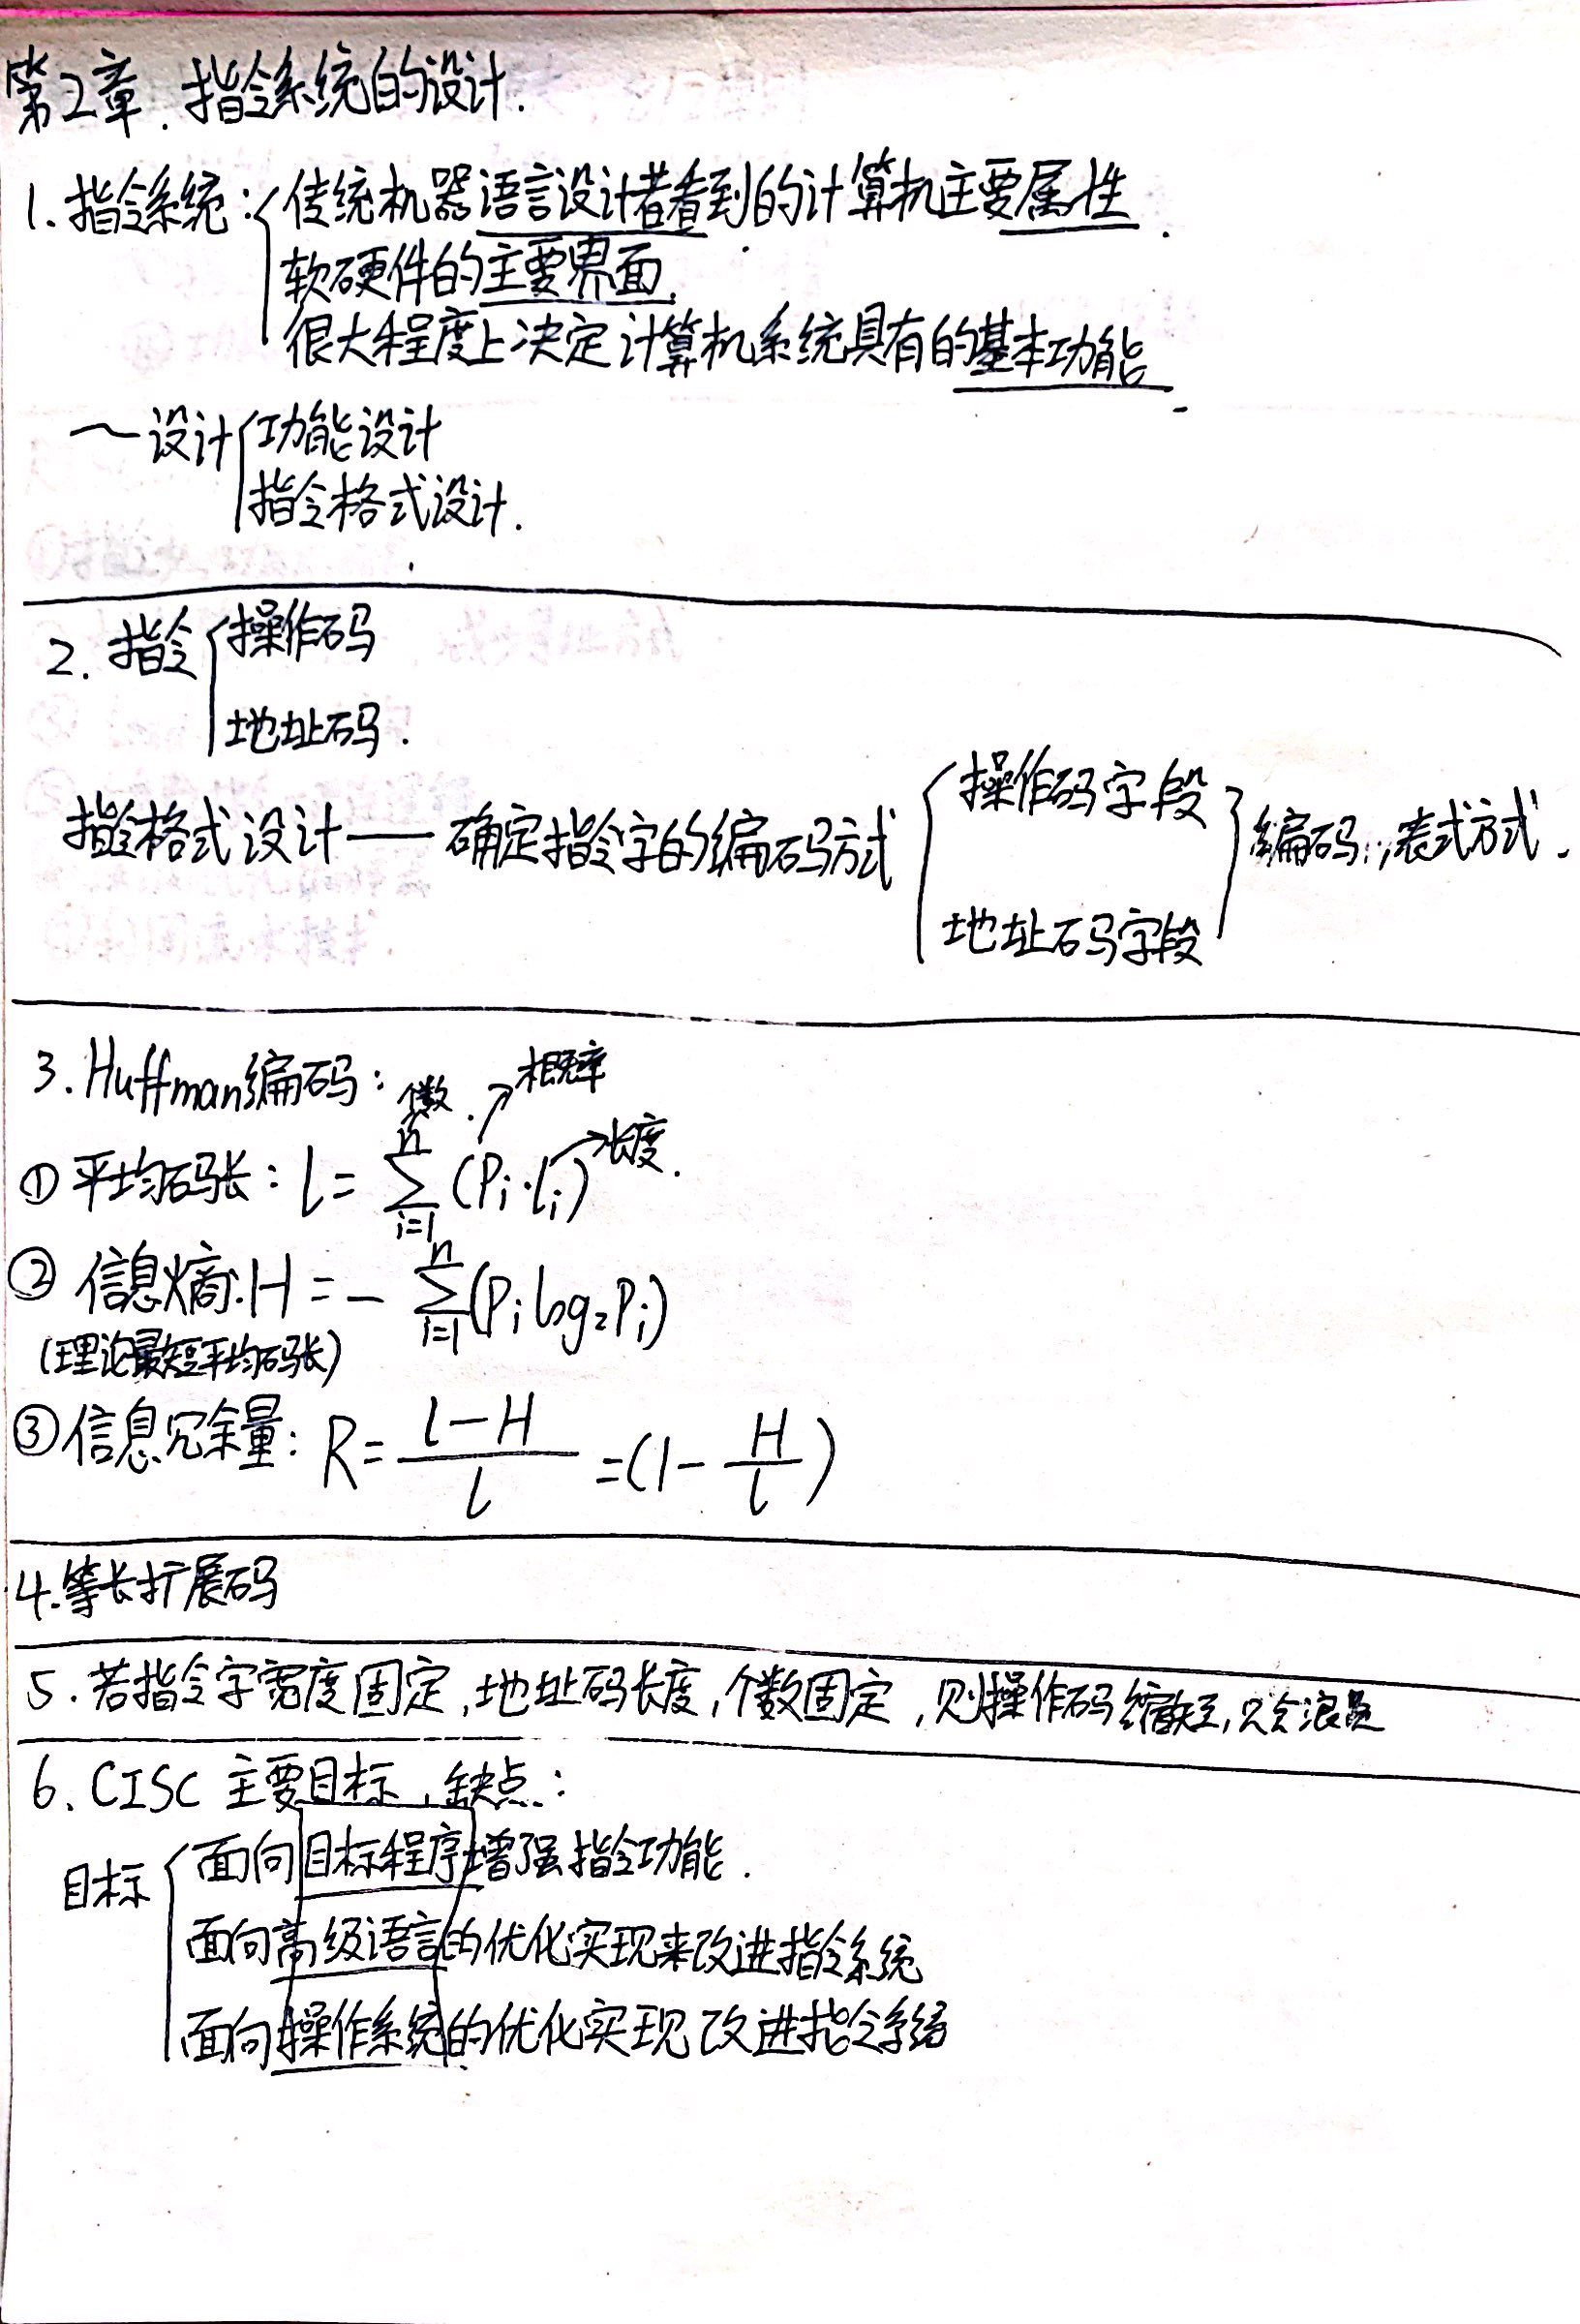 第2章. 指令系统的设计.
1. 指令系统: { 传统机器语言设计者看到的计算机主要属性.
软硬件的主要界面.
很大程度上决定计算机系统具有的基本功能.
～设计 { 功能设计
指令格式设计.
2. 指令 { 操作码
地址码.
指令格式设计 —— 确定指令字的编码方式 { 操作码字段
地址码字段 } 编码, 表式方式.
3. Huffman编码:
个数. ↗概率
① 平均码长: l = n∑i=1 (Pi·li) →长度.
② 信息熵: H = - n∑i=1 (Pi log₂Pi)
(理论最短平均码长)
③ 信息冗余量: R = (l-H)/l = (1 - H/l)
4. 等长扩展码
5. 若指令字宽度固定, 地址码长度, 个数固定, 则操作码缩短, 只会浪费
6. CISC 主要目标, 缺点:
目标 { 面向目标程序增强指令功能.
面向高级语言的优化实现来改进指令系统
面向操作系统的优化实现改进指令系统